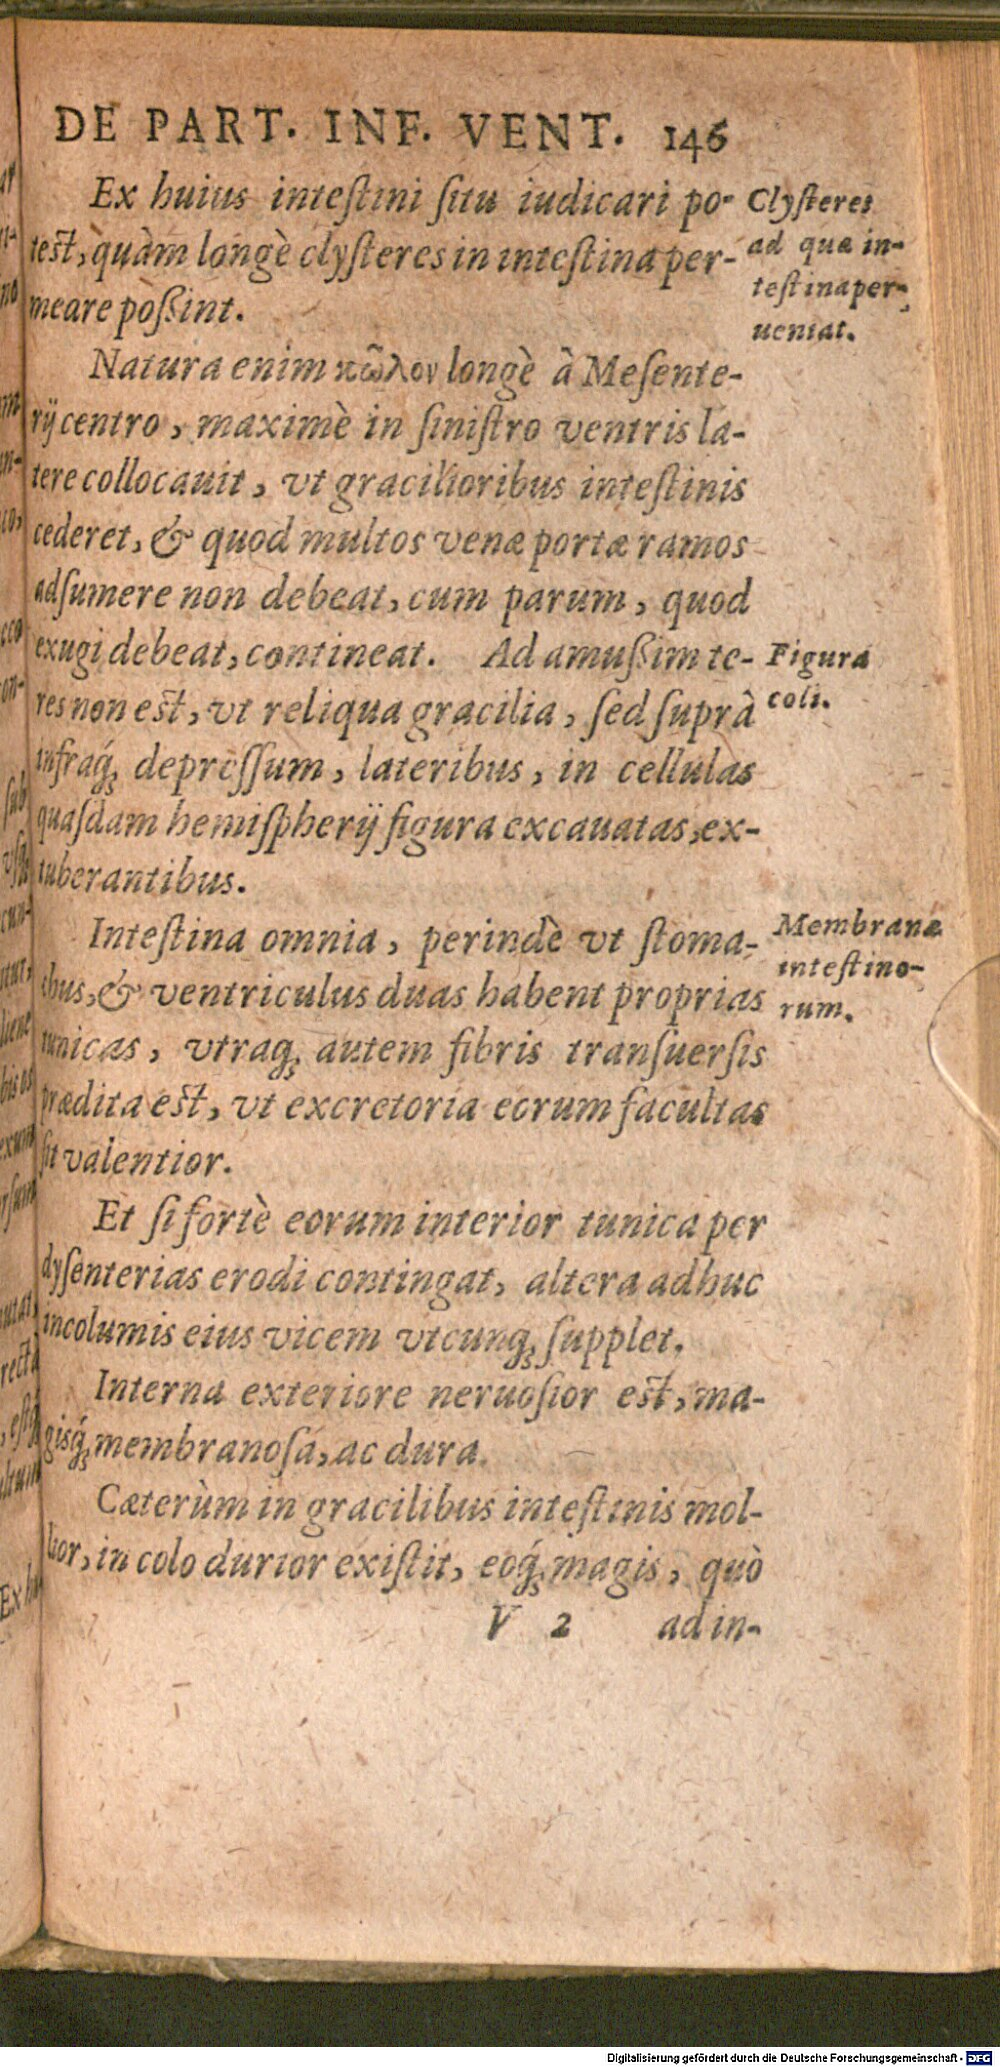 DE PART. INF. VENT. 146
Ex huius inteſtini ſitu iudicari po-
teſt, quàm longè clyſteres in inteſtina per-
meare poßint.
Clyſteres
ad quæ in-
teſtina per-
ueniāt.
Natura enim κῶλον longè à Meſente-
rij centro, maximè in ſiniſtro ventris la-
tere collocauit, vt gracilioribus inteſtinis
cederet, & quod multos venæ portæ ramos
adſumere non debeat, cum parum, quod
exugi debeat, contineat. Ad amußim te-
res non eſt, vt reliqua gracilia, ſed ſuprà
infraq́; depreſſum, lateribus, in cellulas
quaſdam hemiſpherij figura excauatas, ex-
tuberantibus.
Figura
coli.
Inteſtina omnia, perindè vt ſtoma-
chus, & ventriculus duas habent proprias
tunicas, vtraq; autem fibris tranſuerſis
prædita eſt, vt excretoria eorum facultas
ſit valentior.
Membranæ
inteſtino-
rum.
Et ſi fortè eorum interior tunica per
dyſenterias erodi contingat, altera adhuc
incolumis eius vicem vtcunq; ſupplet.
Interna exteriore neruoſior eſt, ma-
giſq́; membranoſa, ac dura.
Cæterùm in gracilibus inteſtinis mol-
lior, in colo durior exiſtit, eoq́; magis, quò
V 2 ad in-
Digitalisierung gefördert durch die Deutsche Forschungsgemeinschaft - DFG